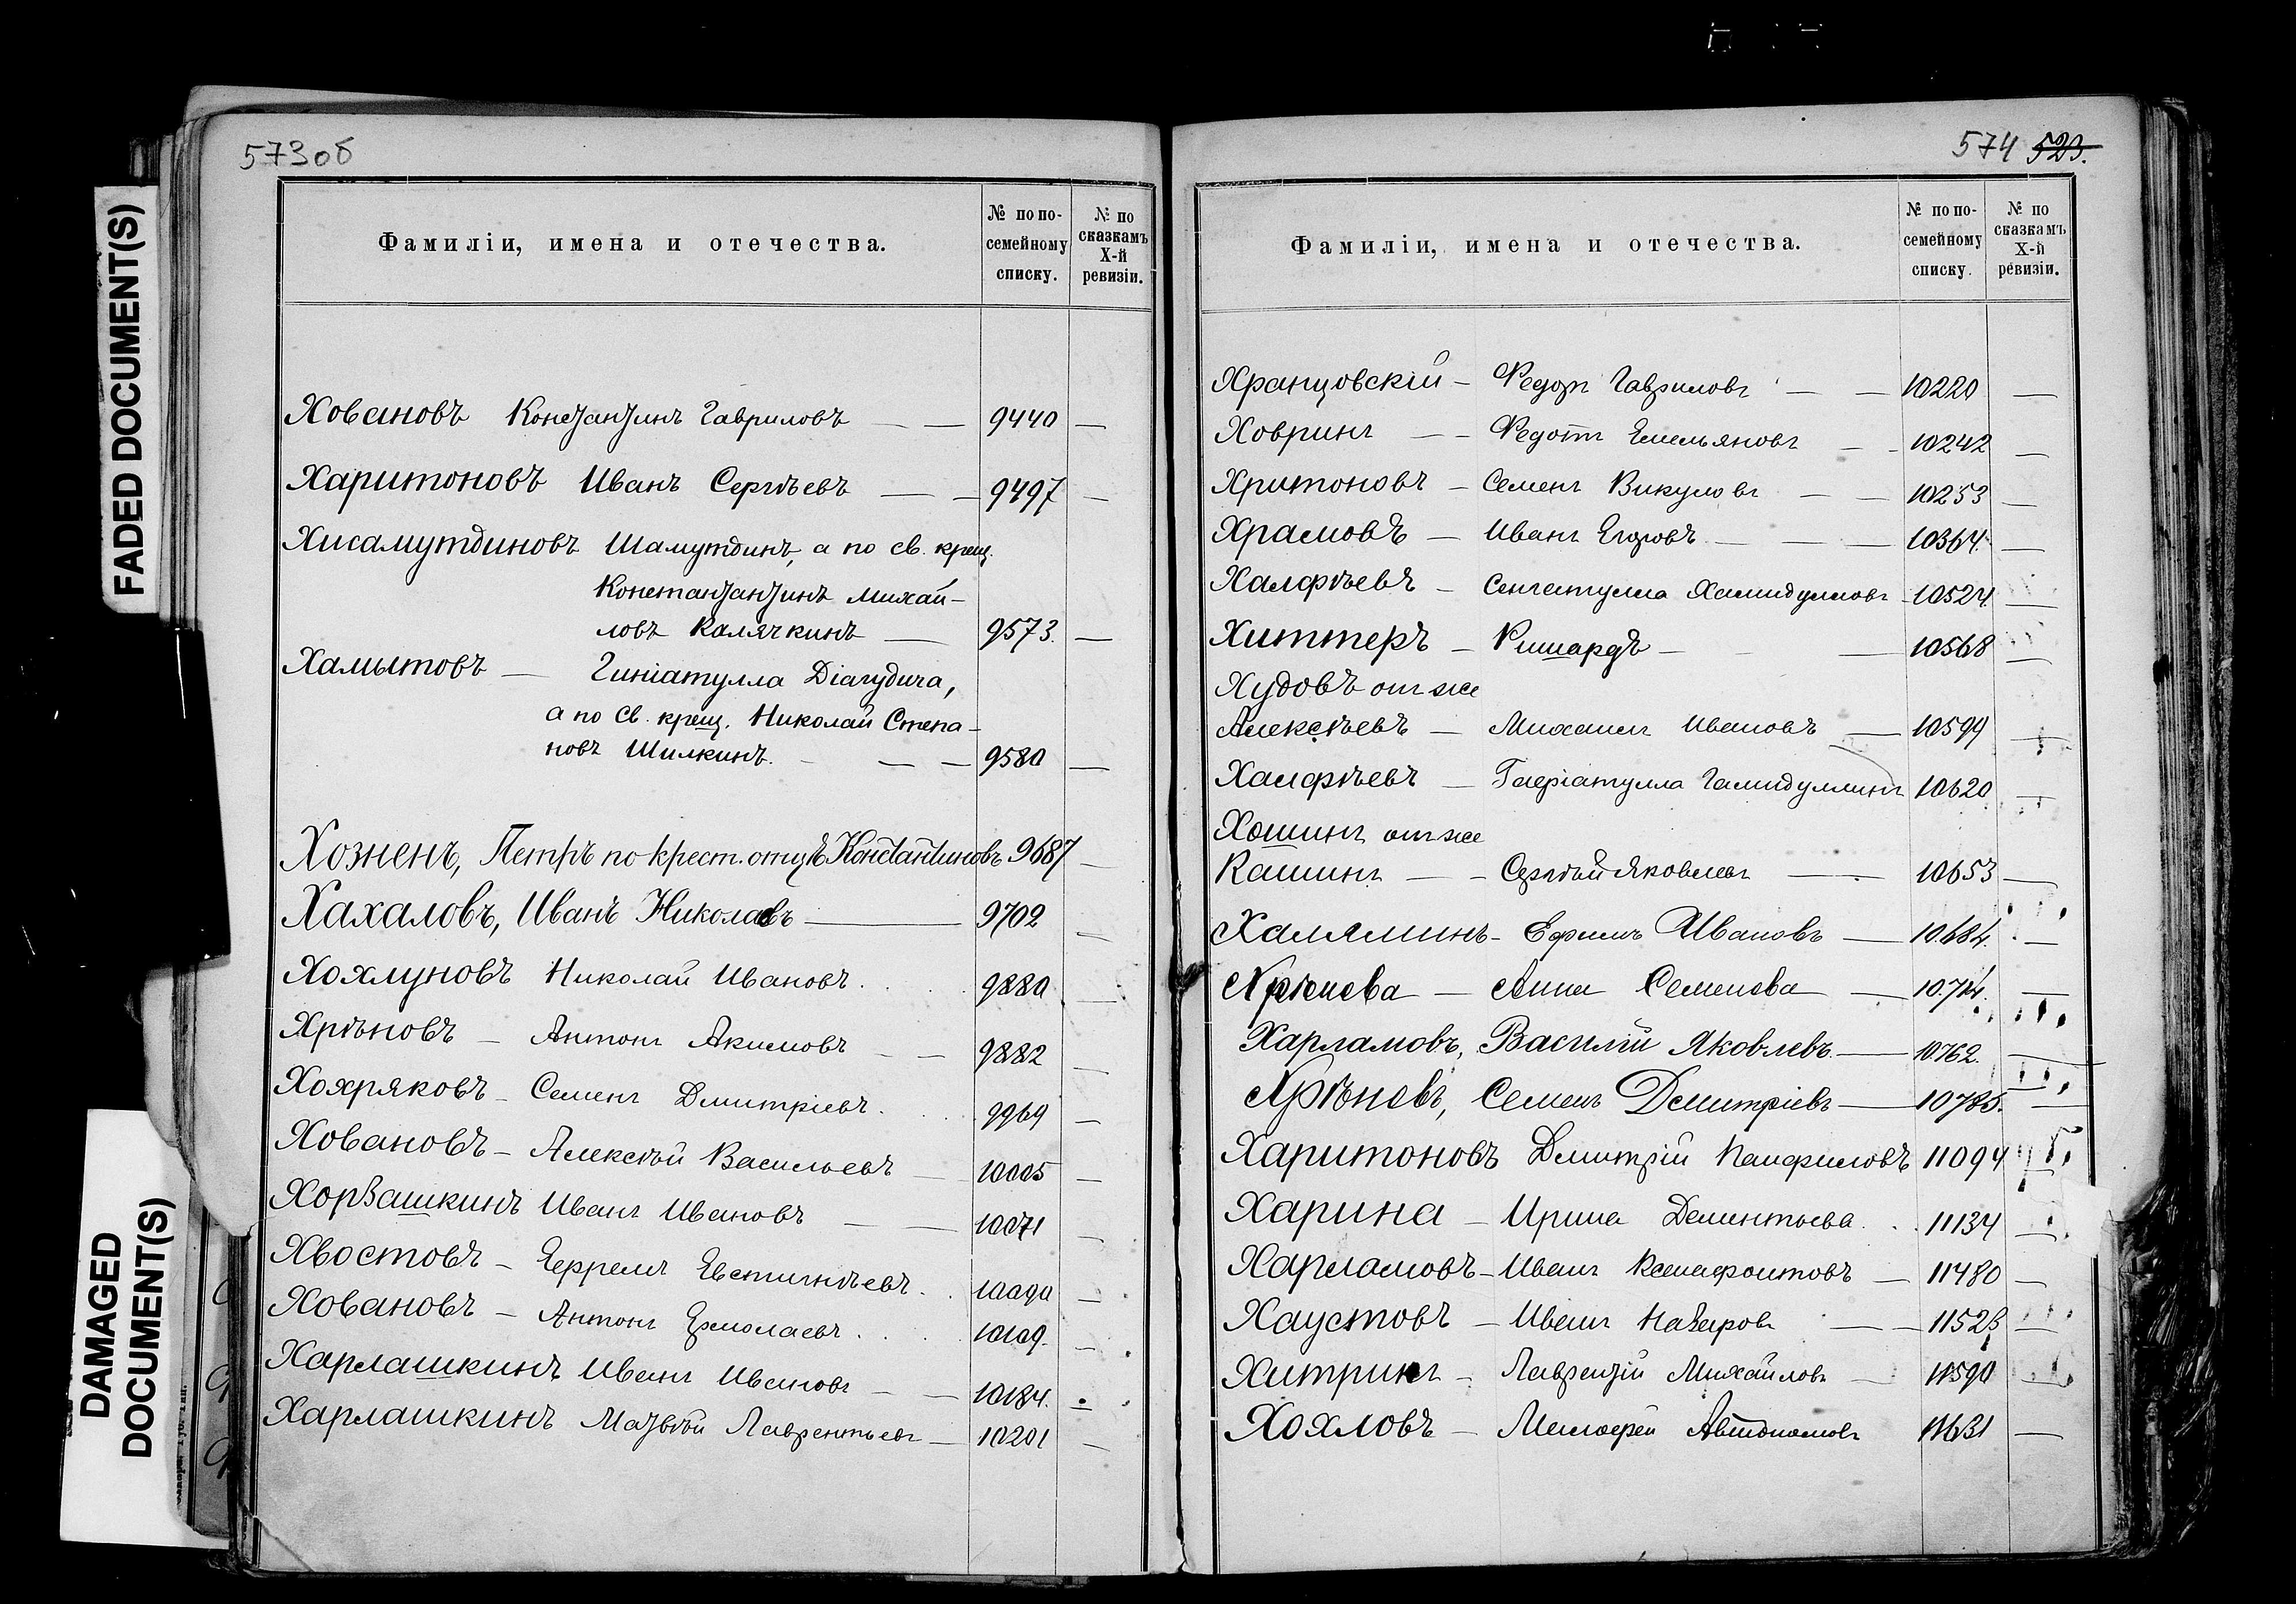 FADED DOCUMENT(S)
DAMAGED
DOCUMENT(S)
573об
Фамиліи, имена и отечества.
№ по по-
семейному
списку.
№ по
сказкамъ
X-й
ревизіи.
Ховановъ Константинъ Гавриловъ — — 9440 —
Харитоновъ Иванъ Сергѣевъ — — 9497 —
Хисамутдиновъ Шамутдинъ, а по св. крещ.
Константантинъ Михай-
ловъ Калячкинъ — 9573. —
Хамытовъ — Гиніатулла
а по св. крещ. Николай Степа-
новъ Шилкинъ. — — — 9580 —
Хозненъ, Петръ по крест. отцѣ Константиновъ 9687 —
Хахаловъ, Иванъ Николаевъ — 9702 —
Хохлуновъ Николай Ивановъ . . . 9880 —
Хрѣновъ — Антонъ Акимовъ — — 9882 —
Хохряковъ — Семенъ Дмитріевъ . . . 9969 —
Ховановъ — Алексѣй Васильевъ — 10005 —
Хорвашкинъ Иванъ Ивановъ — — 10071 —
Хвостовъ — Ефремъ Евстигнѣевъ . . 10090 —
Ховановъ — Антонъ Ермолаевъ . . . 10109. —
Харлашкинъ Иванъ Ивановъ — — 10184. —
Харлашкинъ Матвѣй Лаврентьевъ — 10201 —
574 523.
Фамиліи, имена и отечества.
№ по по-
семейному
списку.
№ по
сказкамъ
X-й
ревизіи.
Хранцовскій — Федотъ Гавриловъ — — 10220 —
Ховринъ — — Федотъ Емельяновъ — — 10242 —
Хритоновъ — Семенъ Викуловъ — — 10253 —
Храмовъ — Иванъ Егоровъ — — — 10364. —
Халфѣевъ — Сенгатулла Хамидулловъ — 10524. —
Хиттеръ — Ришардъ — — — 10568 —
Худовъ онъ же
Алексѣевъ — Михаилъ Ивановъ — 10599 —
Халфѣевъ — Гамидуллинъ 10620 —
Хошинъ онъ же
Кашинъ — — Сергѣй Яковлевъ — 10653 —
Халяминъ — Ефимъ Ивановъ — 10.684. —
Хрѣнова — Анна Семенова — 10.714. —
Харламовъ, Василій Яковлевъ. — 10762. —
Хрѣновъ, Семенъ Демитріевъ — 10785. —
Харитоновъ Дмитрій Панфиловъ 11094 —
Харина — Ирина Дементьева . . 11134 —
Харламовъ — Иванъ Ксенафонтовъ — 11480 —
Хаустовъ — Иванъ Назаровъ — — 11523 —
Хитринъ — Лаврентій Михайловъ — 11590 —
Хохловъ — Автономовъ 11631 —